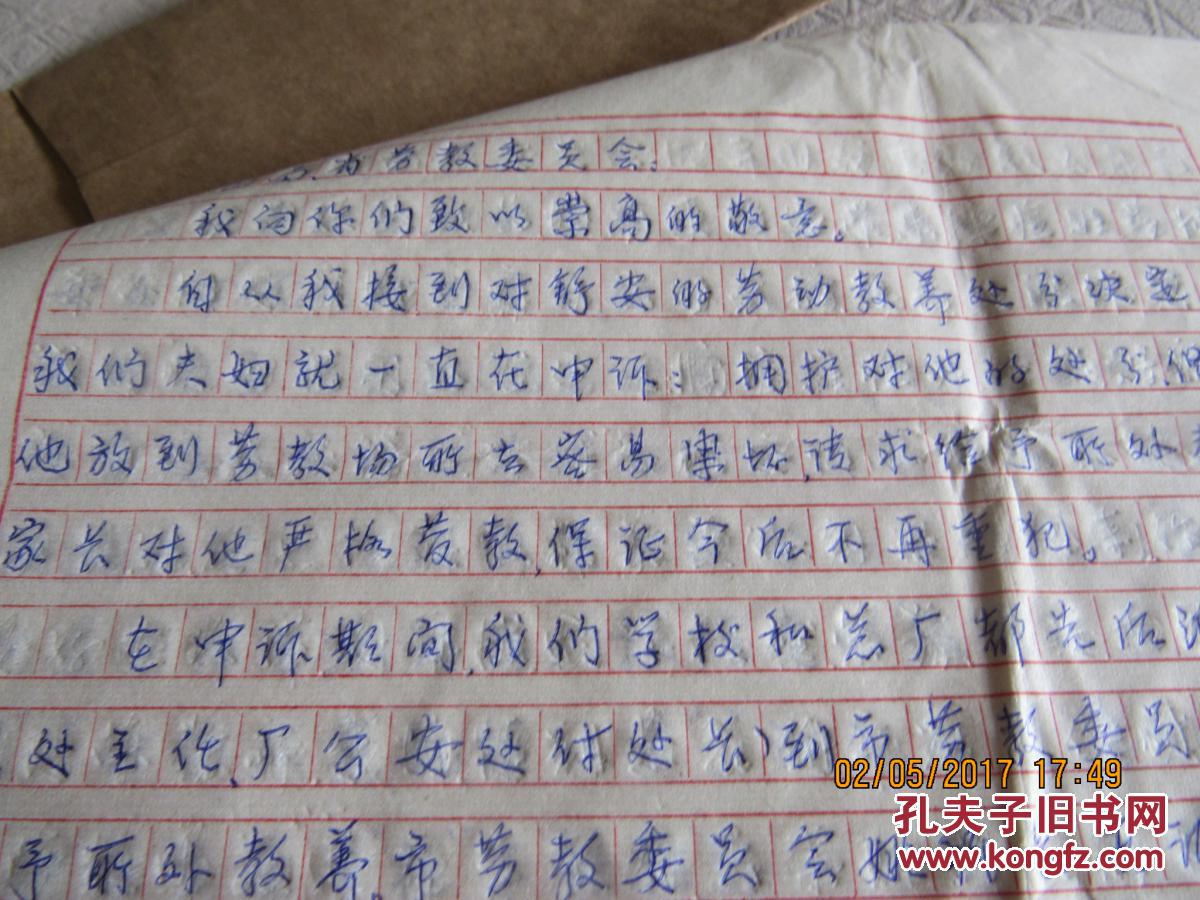 劳教委员会:
我向你们致以崇高的敬意。
自从我接到对舒安的劳动教养处分决定
我们夫妇就一直在申诉:拥护对他的处分,但
他放到劳教场所去容易学坏,请求给予所外
家长对他严格管教,保证今后不再重犯。
在申诉期间,我们学校和总厂都先后
处主任,厂公安处付处长)到市劳教委员
予所外教养。市劳教委员会
02/05/2017 17:49
孔夫子旧书网
www.kongfz.com